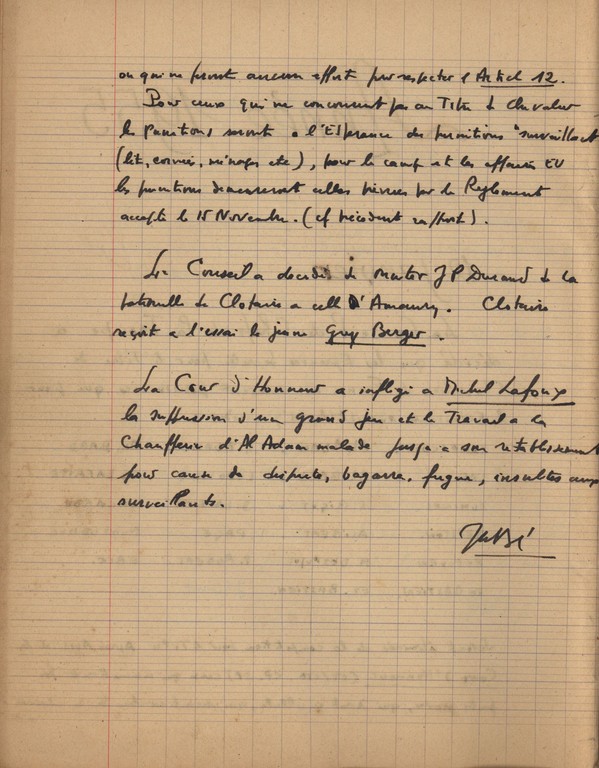 ou qui ne feront aucun effort pour respecter l'Article 12.
Pour ceux qui ne concourent pas au Titre de Chevalier
les punitions seront a l'Esperance des punitions "surveillants
(lit, corvées, ménages etc), pour le camp et les affaires EU
les punitions demeureront celles prévues par le Reglement
accepté le 15 Novembre. (cf précédent rapport).
Le Conseil a decidé de muter J P Durand de la
patrouille de Clotaire a celle d'Amaury. Clotaire
reçoit a l'essai le jeune Guy Berger.
La Cour d'Honneur a infligé a Michel
la suppression d'un grand jeu et le Travail a la
Chaufferie d'Al Adam malade jusqu'a son retablissement
pour cause de dispute, bagarre, fugue, insultes aux
surveillants.